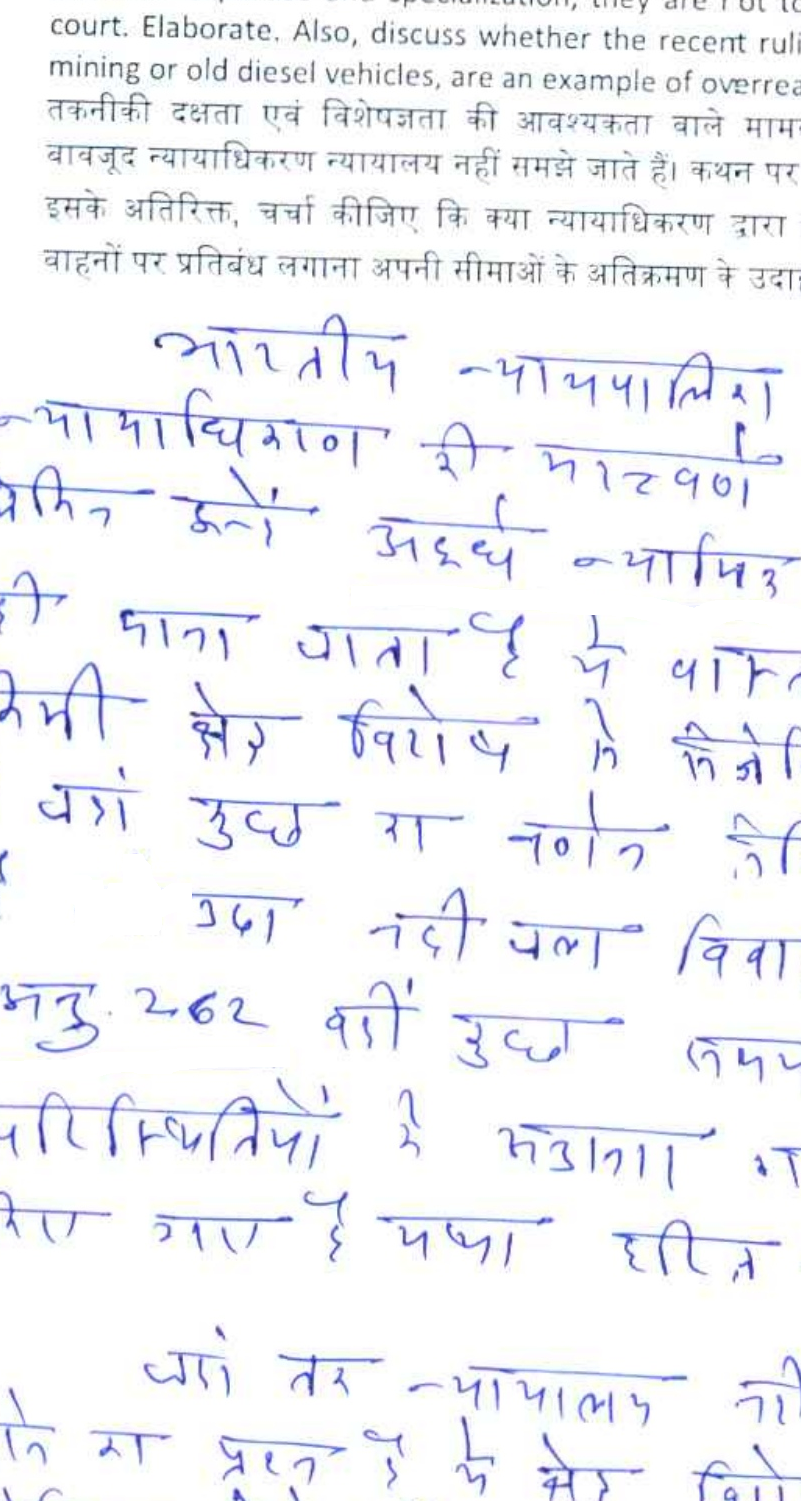 court. Elaborate. Also, discuss whether the recent ruli
mining or old diesel vehicles, are an example of overrea
तकनीकी दक्षता एवं विशेषज्ञता की आवश्यकता वाले माम
बावजूद न्यायाधिकरण न्यायालय नहीं समझे जाते हैं। कथन पर
इसके अतिरिक्त, चर्चा कीजिए कि क्या न्यायाधिकरण द्वारा
वाहनों पर प्रतिबंध लगाना अपनी सीमाओं के अतिक्रमण के उदा
भारतीय न्यायपालिका
न्यायाधिकरण की महत्वपूर्ण
लेकिन इन्हें अर्द्ध न्यायिक
ही माना जाता है ये वास्त
किसी क्षेत्र विशेष से
जहां कुछ का वर्णन
उदा नदी जल विवा
अनु. 262 वहीं कुछ समय
परिस्थितियों के
किए गए है यथा हरित
जहां तक न्यायालय
का प्रश्न है ये क्षेत्र